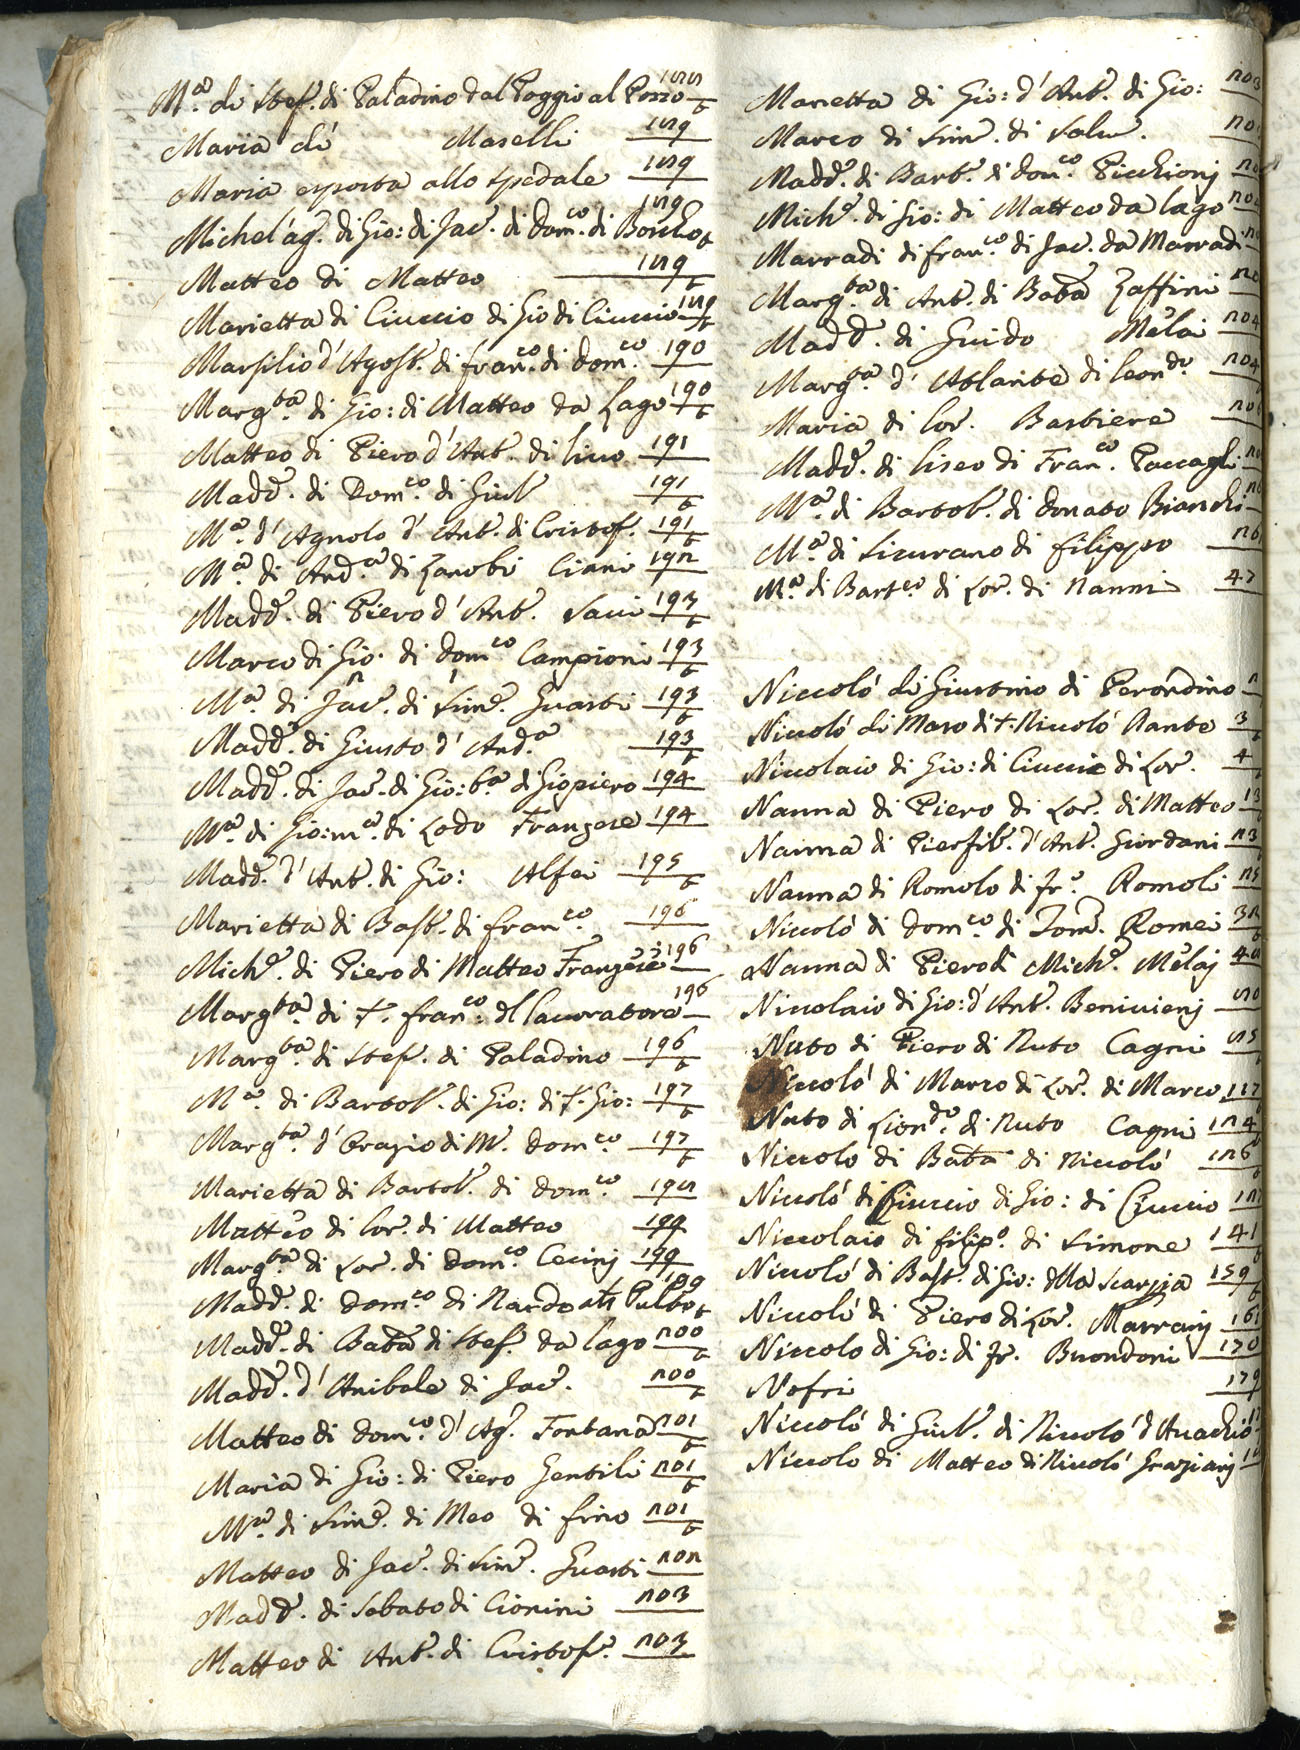 M.ª di Stef. di Paladino dal Poggio al Pozzo
Maria di Maselli 189
Maria esposta allo spedale 189
Michel'ag. di Gio: di Jac. di Dom.co di 189
Matteo di Matteo 189
Marietta di Ciuccio di Gio di Ciuccio 189
Marsilio d'Agost. di fran.co di Dom.co 190
Marg.ta di Gio: di Matteo da Lago 190
Matteo di Piero d'Ant. di lino 191
Madd. di Dom.co di Giul 191
M.ª d'Agnolo d'Ant. di Cristof. 191
M.ª di And.ª di Zanobi Ciani 192
Madd. di Piero d'Ant. 193
Marco di Gio. di Dom.co Campioni 193
M.ª di Jac. di Sime. Guasti 193
Madd. di Giusto d'And.ª 193
Madd. di Jac. di Gio: b.ª di Giopiero 194
M.ª di Gio: m.ª di Lodo Franzese 194
Madd. d'Ant. di Gio: Alfei 195
Marietta di Bast. di fran.co 196
Mich.e di Piero di Matteo Franzesi 196
Marg.ta di fran.co lavoratore 196
Marg.ta di Stef. di Paladino 196
M.ª di Bartol. di Gio: di f. Gio: 197
Marg.ta d'Orazio di M. Dom.co 197
Marietta di Bartol. di Dom.co 198
Matteo di Lor. di Matteo 199
Marg.ta di Lor. di Dom.co Cecinj 199
Madd. di Dom.co di Nardo 199
Madd. di Bat.a di Stef. da Lago 200
Madd. d'Anibale di Jac. 200
Matteo di Dom.co d'Ag. Fontana 201
Maria di Gio: di Piero Gentili 201
M.ª di Sime. di Meo di fino 201
Matteo di Jac. di Sim. Guasti 202
Madd. di Sabato di Cionini 203
Matteo di Ant. di Cristof. 203
Marietta di Gio: d'Ant. di Gio: 203
Marco di Sim. di Salv.
Madd. di Bart. di Don.co Picchionj
Mich.e di Gio: di Matteo da Lago
Marradi di fran.co di Jac. da Marradi
Marg.ta di Ant. di Bat.a Zaffini
Madd. di Guido Melai 204
Marg.ta d'Atlante di leon.do 204
Maria di Lor. Barbiere
Madd. di Liseo di Fran.co Paccagli
M.ª di Bartol. di Donato Bianchi
M.ª di Sicurano di Filippo
M.ª di Bart.co di Lor. di Nanni 47
Niccoló di Giustino di Perondino 2
Niccoló di Maso di f. Niccoló 3
Niccolaio di Gio: di Ciuccio di Lor. 4
Nanna di Piero di Lor. di Matteo 13
Nanna di Pierfil. d'Ant. Giordani 23
Nanna di Romolo di fr.o Romoli 25
Niccoló di Dom.co di Tom. Romei 32
Nanna di Piero di Mich.e Melaj
Niccolaio di Gio: d'Ant. Benivienj 80
Nuto di Piero di Nuto Cagni 85
Niccoló di Marco di Lor. di Marco 117
Nuto di Lion.do di Nuto Cagni 124
Niccolo di Bat.a di Niccoló 126
Niccoló di Ciuccio di Gio: di Ciuccio
Niccolaio di Filip.o di Simone 141
Niccoló di Bast. di Gio: della Scarpia 159
Niccoló di Piero di Lor. Marranj
Niccolo di Gio: di fr. Buondoni 170
Nofri 179
Niccoló di Giul. di Niccoló
Niccolo di Matteo di Niccoló Grazianj